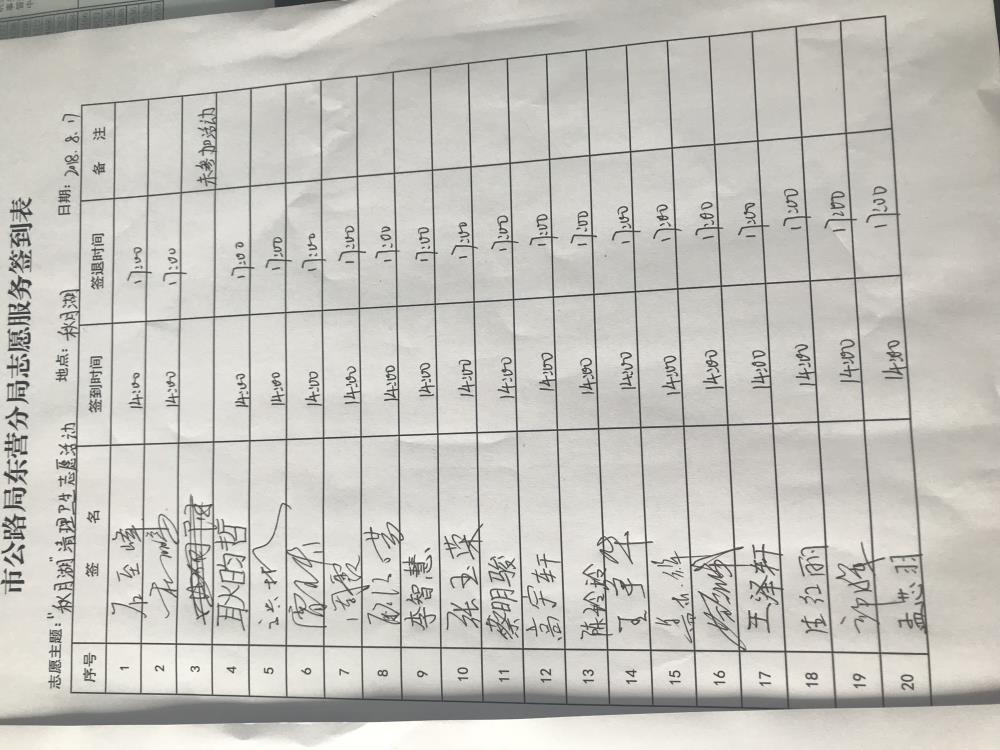 市公路局东营分局志愿服务签到表
志愿主题：“秋月湖”清理卫生志愿活动 地点：秋月湖 日期：2018.8.17
序号 签 名 签到时间 签退时间 备 注
1 14:00 17:00
2 14:00 17:00
3 未参加活动
4 耿昀哲 14:00 17:00
5 14:00 17:00
6 14:00 17:00
7 14:00 17:00
8 14:00 17:00
9 李智慧 14:00 17:00
10 张玉荣 14:00 17:00
11 黎明骏 14:00 17:00
12 高宇轩 14:00 17:00
13 陈玲玲 14:00 17:00
14 14:00 17:00
15 14:00 17:00
16 14:00 17:00
17 王泽轩 14:00 17:00
18 庄红丽 14:00 17:00
19 14:00 17:00
20 孟芷羽 14:00 17:00